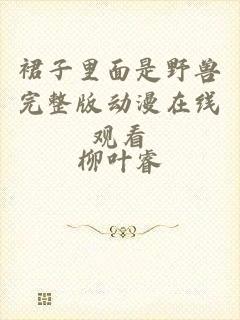 裙子里面是野兽
完整版动漫在线
观看
柳叶睿